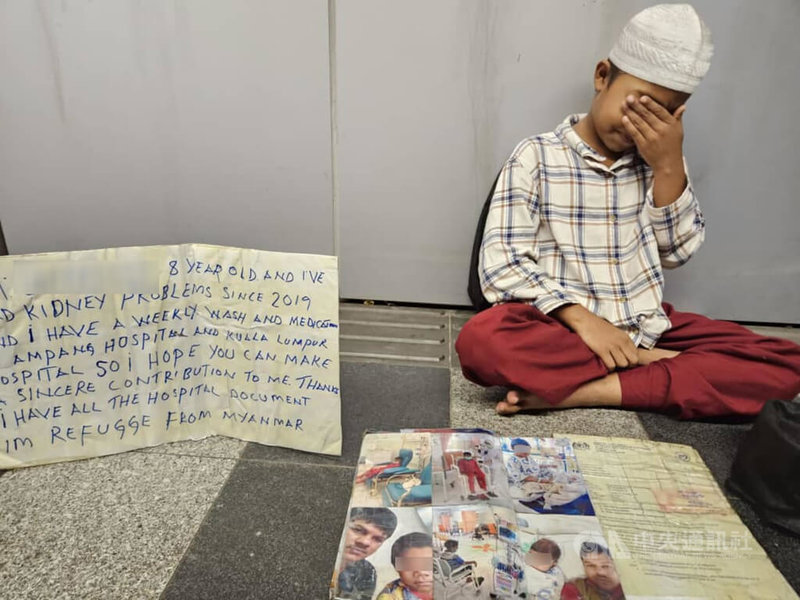 8 YEAR OLD AND I'VE
KIDNEY PROBLEMS SINCE 2019
I HAVE A WEEKLY WASH AND MEDICATION
AMPANG HOSPITAL AND KUALA LUMPUR
HOSPITAL SO I HOPE YOU CAN MAKE
A SINCERE CONTRIBUTION TO ME. THANKS
I HAVE ALL THE HOSPITAL DOCUMENT
IM REFUGGE FROM MYANMAR
中央通訊社